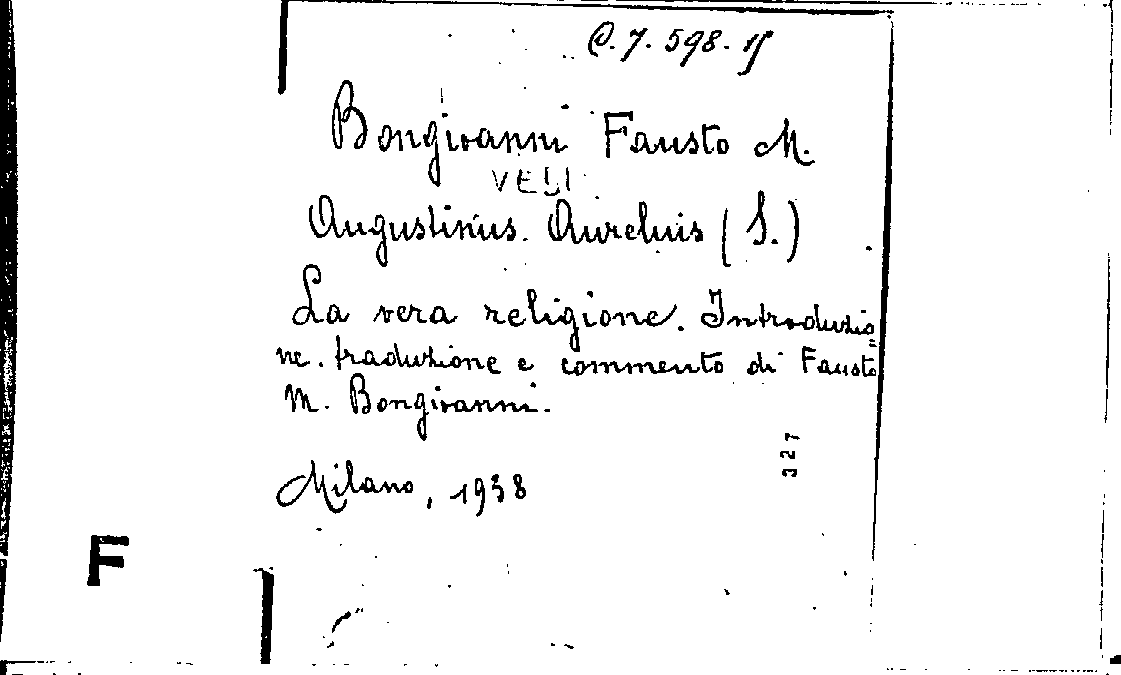 C.7.598.15
Bongiovanni Fausto M.
VEDI
Augustinus. Aurelius (S.)
La vera religione. Introduzio
ne. traduzione e commento di Fausto
M. Bongiovanni.
327
Milano, 1938
F